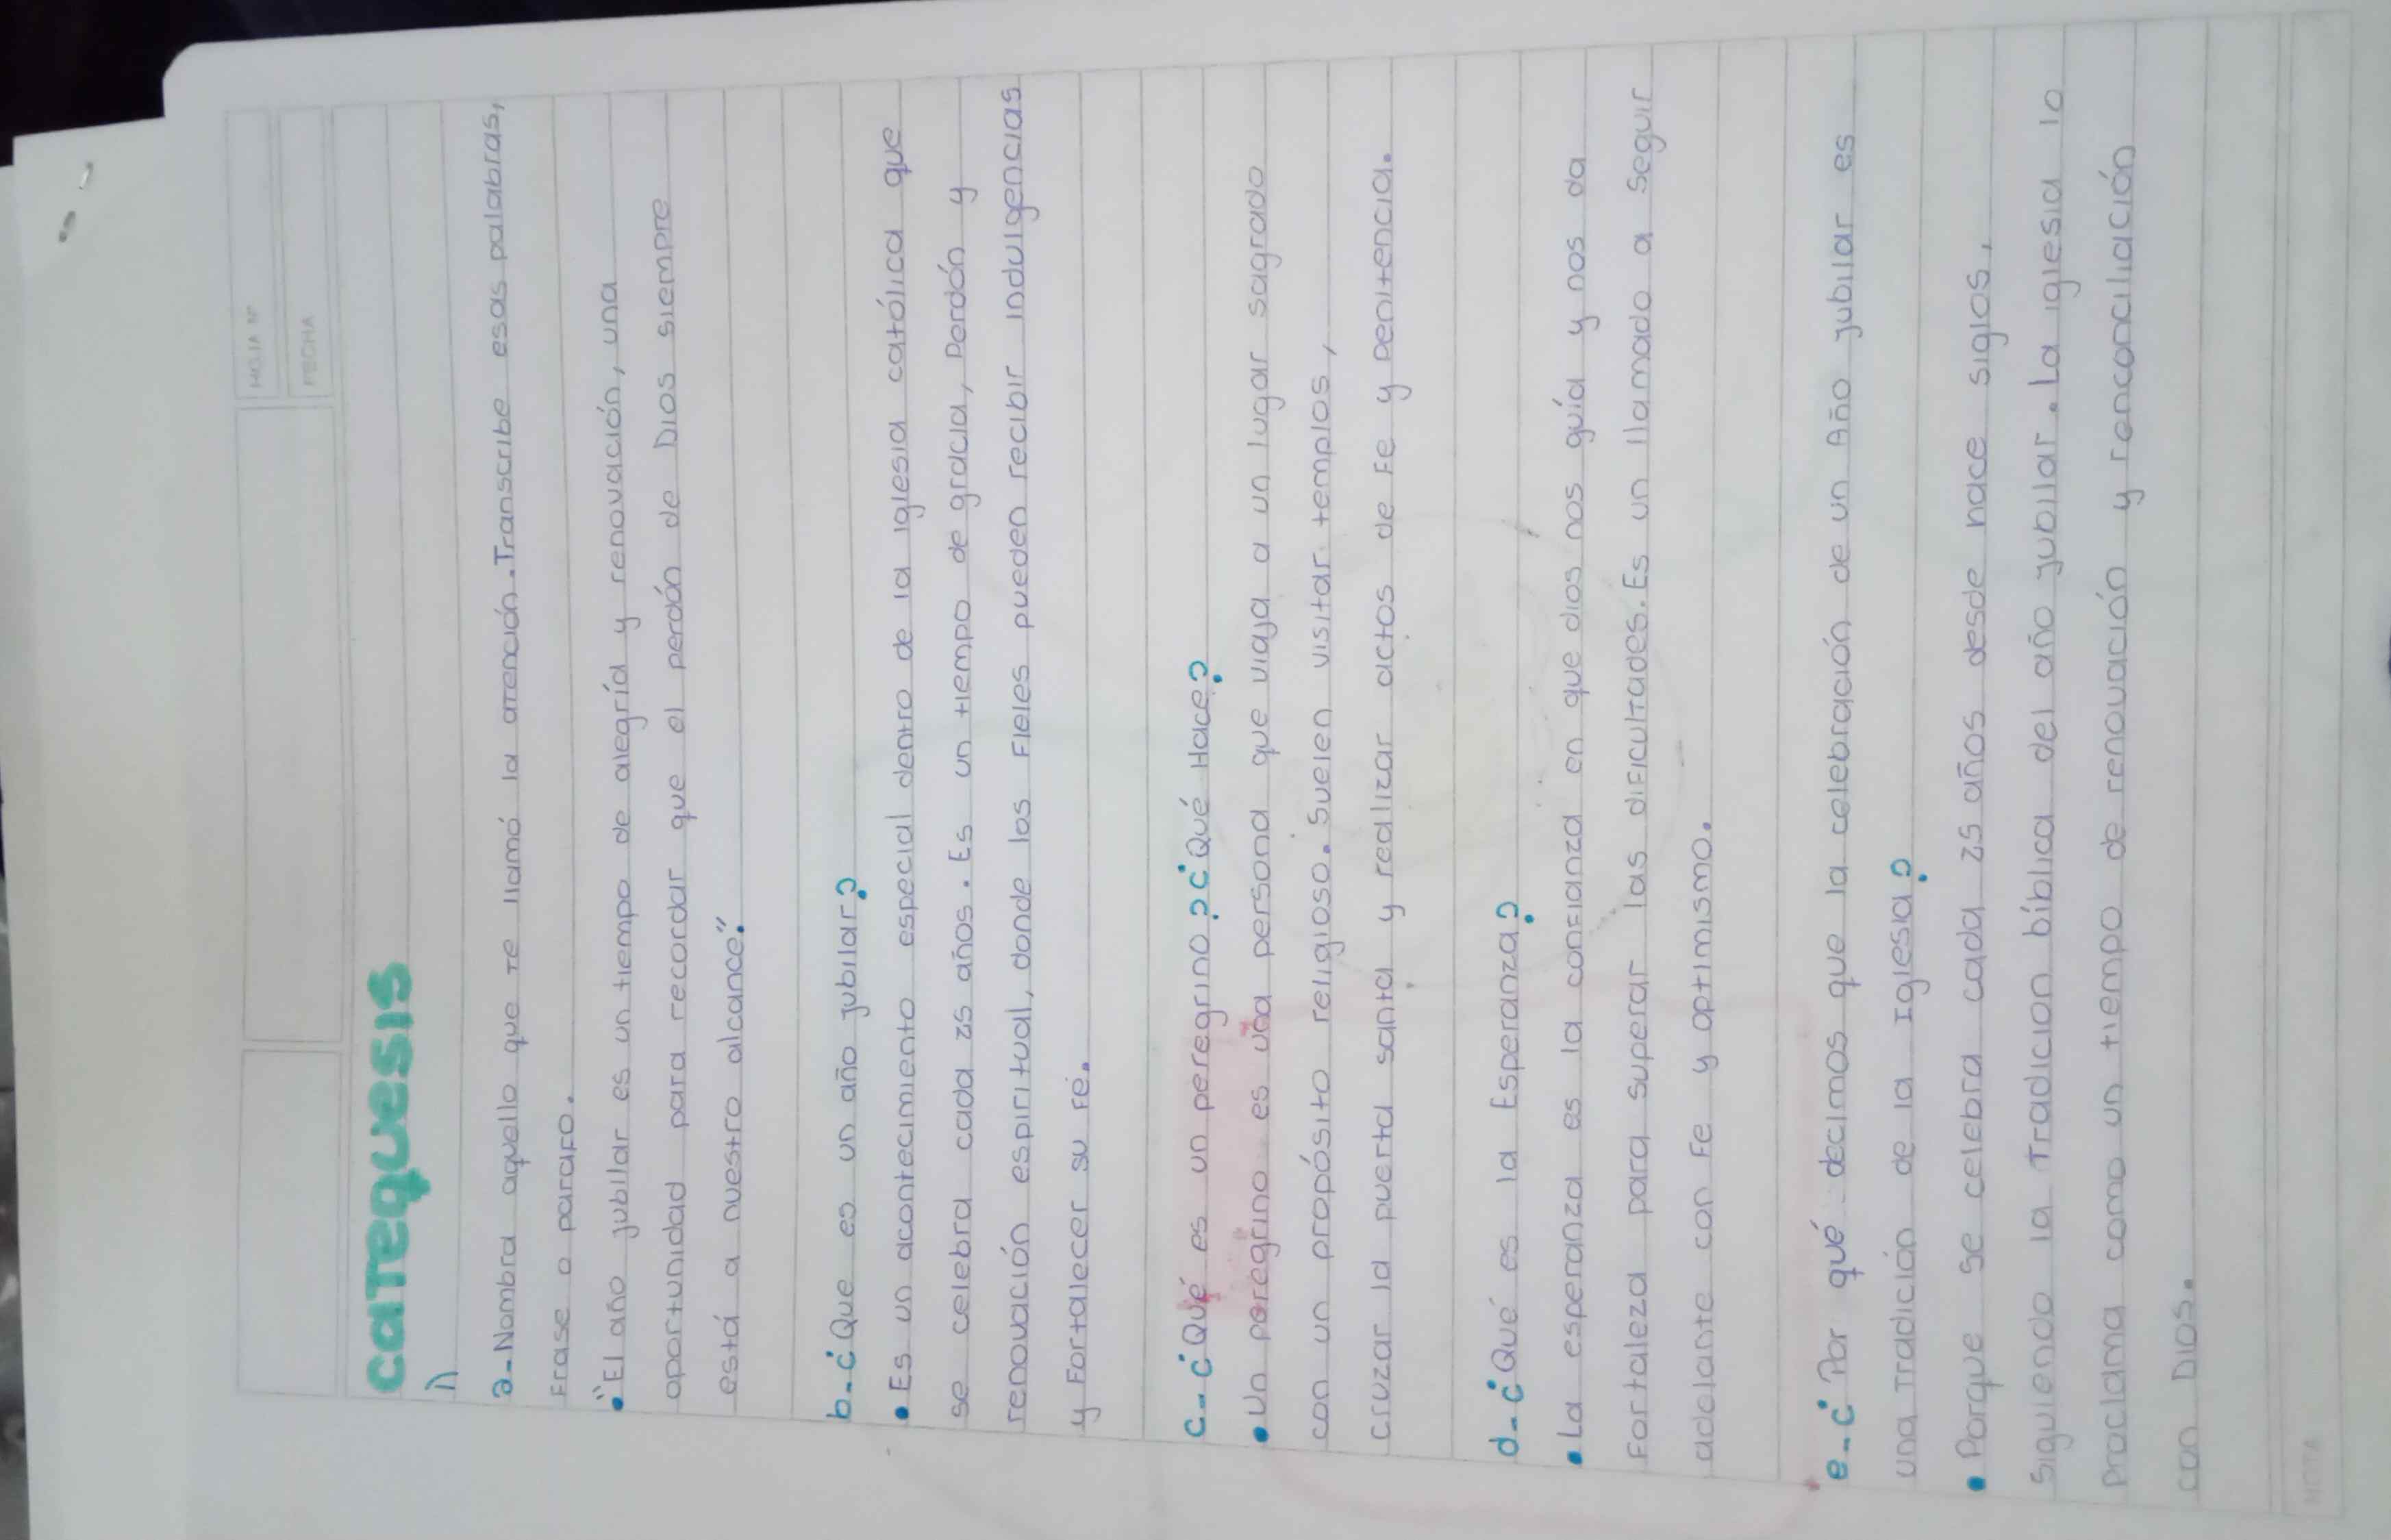 HOJA Nº
FECHA
catequesis
1)
a-Nombra aquello que te llamó la atención.Transcribe esas palabras,
Frase o pararo.
• "El año jubilar es un tiempo de alegría y renovación, una
oportunidad para recordar que el perdón de Dios siempre
está a nuestro alcance".
b-¿Que es un año jubilar?
• Es un acontecimiento especial dentro de la iglesia católica que
se celebra cada 25 años. Es un tiempo de gracia, Perdón y
renovación espiritual, donde los Fieles pueden recibir indulgencias
y Fortalecer su Fé.
c-¿Qué es un peregrino? ¿Qué Hace?
• Un peregrino es una persona que viaja a un lugar sagrado
con un propósito religioso. Suelen visitar templos,
cruzar la puerta santa y realizar actos de Fe y penitencia.
d-¿Qué es la Esperanza?
• La esperanza es la confianza en que dios nos guía y nos da
Fortaleza para superar las dificultades. Es un llamado a seguir
adelante con Fe y optimismo.
e-¿Por qué decimos que la celebración de un Año jubilar es
una Tradición de la Iglesia?
• Porque se celebra cada 25 años desde hace siglos,
siguiendo la Tradicion bíblica del año jubilar. La iglesia lo
proclama como un tiempo de renovación y renconciliación
con Dios.
NOTA